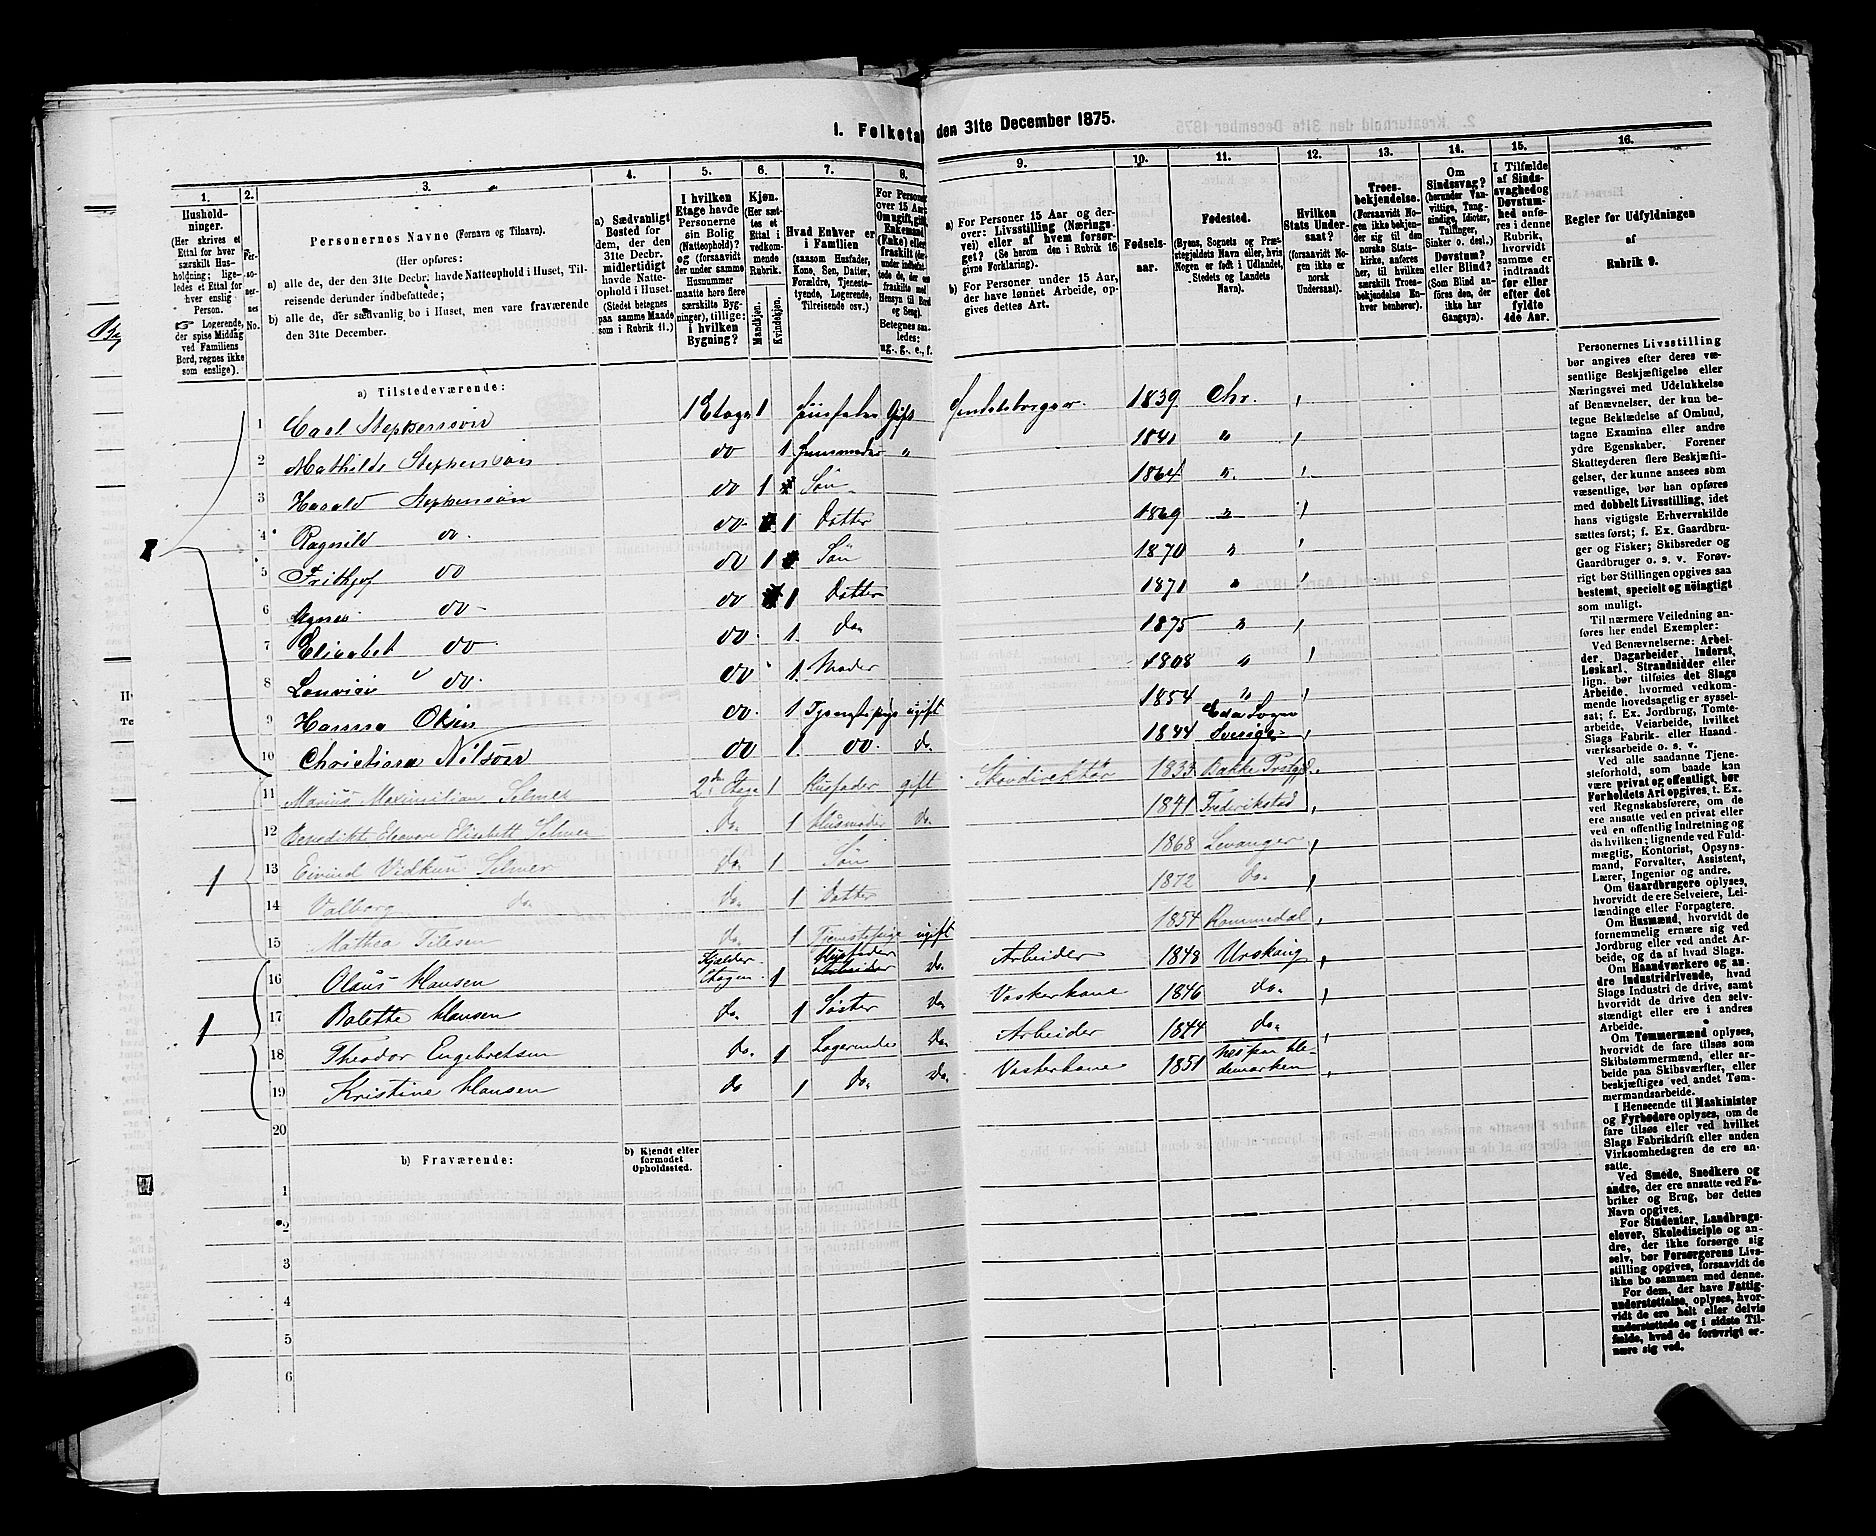 1. Folketal den 31te December 1875.
1. 2. 3. 4. 5. 6. 7. 8. 9. 10. 11. 12. 13. 14. 15. 16.
Husholdninger.
(Her skrives et Ettal for hver særskilt Husholdning; ligeledes et Ettal for hver enslig Person.
☞ Logerende, der spise Middag ved Familiens Bord, regnes ikke som enslige).
Personernes No.
Personernes Navne (Fornavn og Tilnavn).
(Her opføres:
a) alle de, der den 31te Decbr. havde Natteophold i Huset, Tilreisende derunder indbefattede;
b) alle de, der sædvanlig bo i Huset, men vare fraværende den 31te December.
a) Sædvanligt Bosted for dem, der den 31te Decbr. midlertidigt havde Natteophold i Huset. (Stedet betegnes paa samme Maade som i Rubrik 11.)
I hvilken Etage havde Personerne sin Bolig (Natteophold)? og (forsaavidt der under samme Husnummer maatte høre flere særskilte Bygninger), tillige: i hvilken Bygning?
Kjøn.
(Her sættes et Ettal i vedkommende Rubrik.
Mandkjøn. Kvindekjøn.
Hvad Enhver er i Familien
(saasom Husfader, Kone, Søn, Datter, Forældre, Tjenestetyende, Logerende, Tilreisende osv.)
a) For Personer 15 Aar og derover: Livsstilling (Næringsvei) eller af hvem forsørget? (Se herom den i Rubrik 16 givne Forklaring).
b) For Personer under 15 Aar, der have lønnet Arbeide, opgives dettes Art.
Fødselsaar.
Fødested.
(Byens, Sognets og Præstegjeldets Navn eller, hvis Nogen er født i Udlandet, Stedets og Landets Navn).
Hvilken Stats Undersaat?
(forsaavidt Nogen ikke er norsk Undersaat).
Troesbekjendelse.
(Forsaavidt Nogen ikke bekjender sig til den norske Statskirke, anføres her, til hvilken særskilt Troesbekjendelse Enhver henhører).
Om Sindssvag? (herunder Vanvittige, Tungsindige, Idioter, Tullinger, Sinker o. desl.) Døvstum? eller Blind? (Som Blind anføres den, der ikke har Gangsyn).
I Tilfælde af Sindssvaghed og Døvstumhed anføres i denne Rubrik, hvorvidt samme er indtraadt før eller efter det fyldte 4de Aar.
Regler for Udfyldningen
af
Rubrik 9.
a) Tilstedeværende:
1 Carl Stephenson 1 Etage 1 Husfader Gift Handelsborger 1839 Chr.
2 Mathilde Stephenson do 1 Husmoder " 1841 "
3 Harald Stephenson do 1 Søn 1864 "
4 Ragnild do. do. 1 Datter 1869 "
5 Frithjof do do 1 Søn 1870 "
6 Agnes do. do 1 Datter 1871 "
7 Elisabet do. do. 1. do. 1875 "
8 do. do. 1. Moder 1808 "
9 Hanna Olsen do. 1 ugift 1854 "
10 Christiana Nilson do 1. do. do. 1844 Eda Sogn Sverige
11 Marius Maximilian Selmer 2den Etage 1 Husfader gift Skovdirektør 1833 Bakke
12 Benedikte Eleonore Elisabett Selmer do. 1 Husmoder do. 1841 Frederikstad
13 Eivind Vidkun Selmer do. 1 Søn 1868 Levanger
14 Valborg do do. 1 Datter 1872 do.
15 Mathea do. 1 Tjenestepige ugift 1854 Rommedal
16 Olaus Hansen Kjælder Etagen. 1 Husfader do. Arbeider 1848 Urskoug
17 Bolette Hansen do. 1 Søster do. Vaskerkone 1846 do.
18 Theodor Engebretsen do. 1 Logerende do. Arbeider 1844 do.
19 Kristine Hansen do 1 do. do. Vaskerkone 1851
20
b) Fraværende: b) Kjendt eller formodet Opholdssted.
1
2
3
4
5
6
Personernes Livsstilling bør angives efter deres væsentlige Beskjæftigelse eller Næringsvei med Udelukkelse af Benævnelser, der kun betegne Beklædelse af Ombud, tagne Examina eller andre ydre Egenskaber. Forener Skatteyderen flere Beskjæftigelser, der kunne ansees som væsentlige, bør han opføres med dobbelt Livsstilling, idet hans vigtigste Erhvervskilde sættes først; f. Ex. Gaardbruger og Fisker; Skibsreder og Gaardbruger o. s. v. Forøvrigt bør Stillingen opgives saa bestemt, specielt og nøiagtigt som muligt.
Til nærmere Veiledning anføres her endel Exempler:
Ved Benævnelserne: Arbeider, Dagarbeider, Inderst, Løskarl, Strandsidder eller lign. bør tilføies det Slags Arbeide, hvormed vedkommende hovedsagelig er sysselsat; f. Ex. Jordbrug, Tomtearbeide, Veiarbeide, hvilket Slags Fabrik- eller Haandværksarbeide o. s. v.
Ved alle saadanne Tjenesteforhold, som baade kan være privat og offentligt, bør Forholdets Art opgives, t. Ex. ved Regnskabsførere, om de ere ansatte ved en privat eller ved en offentlig Indretning og da hvilken; lignende ved Fuldmægtig, Kontorist, Opsynsmand, Forvalter, Assistent, Lærer, Ingeniør og andre.
Om Gaardbrugere oplyses, hvorvidt de ere Selveiere, Leilændinge eller Forpagtere.
Om Husmænd, hvorvidt de fornemmelig ernære sig ved Jordbrug eller ved andet Arbeide, og da af hvad Slags.
Om Haandværkere og andre Industridrivende, hvad Slags Industri de drive, samt hvorvidt de drive den selvstændigt eller ere i andres Arbeide.
Om Tømmermænd oplyses, hvorvidt de fare tilsøs som Skibstømmermænd, eller arbeide paa Skibsværfter, eller beskjæftiges ved andet Tømmermandsarbeide.
I Henseende til Maskinister og Fyrbødere oplyses, om de fare tilsøs eller ved hvilket Slags Fabrikdrift eller anden Virksomhedsgren de ere ansatte.
Ved Smede, Snedkere og andre, der ere ansatte ved Fabriker og Brug, bør dettes Navn opgives.
For Studenter, Landbrugselever, Skoledisciple og andre, der ikke forsørge sig selv, bør Forsørgerens Livsstilling opgives, forsaavidt de ikke bo sammen med denne.
For dem, der have Fattigunderstøttelse, oplyses, hvorvidt de ere helt eller delvis understøttede og i sidste Tilfælde, hvad de forøvrigt ernære sig ved.